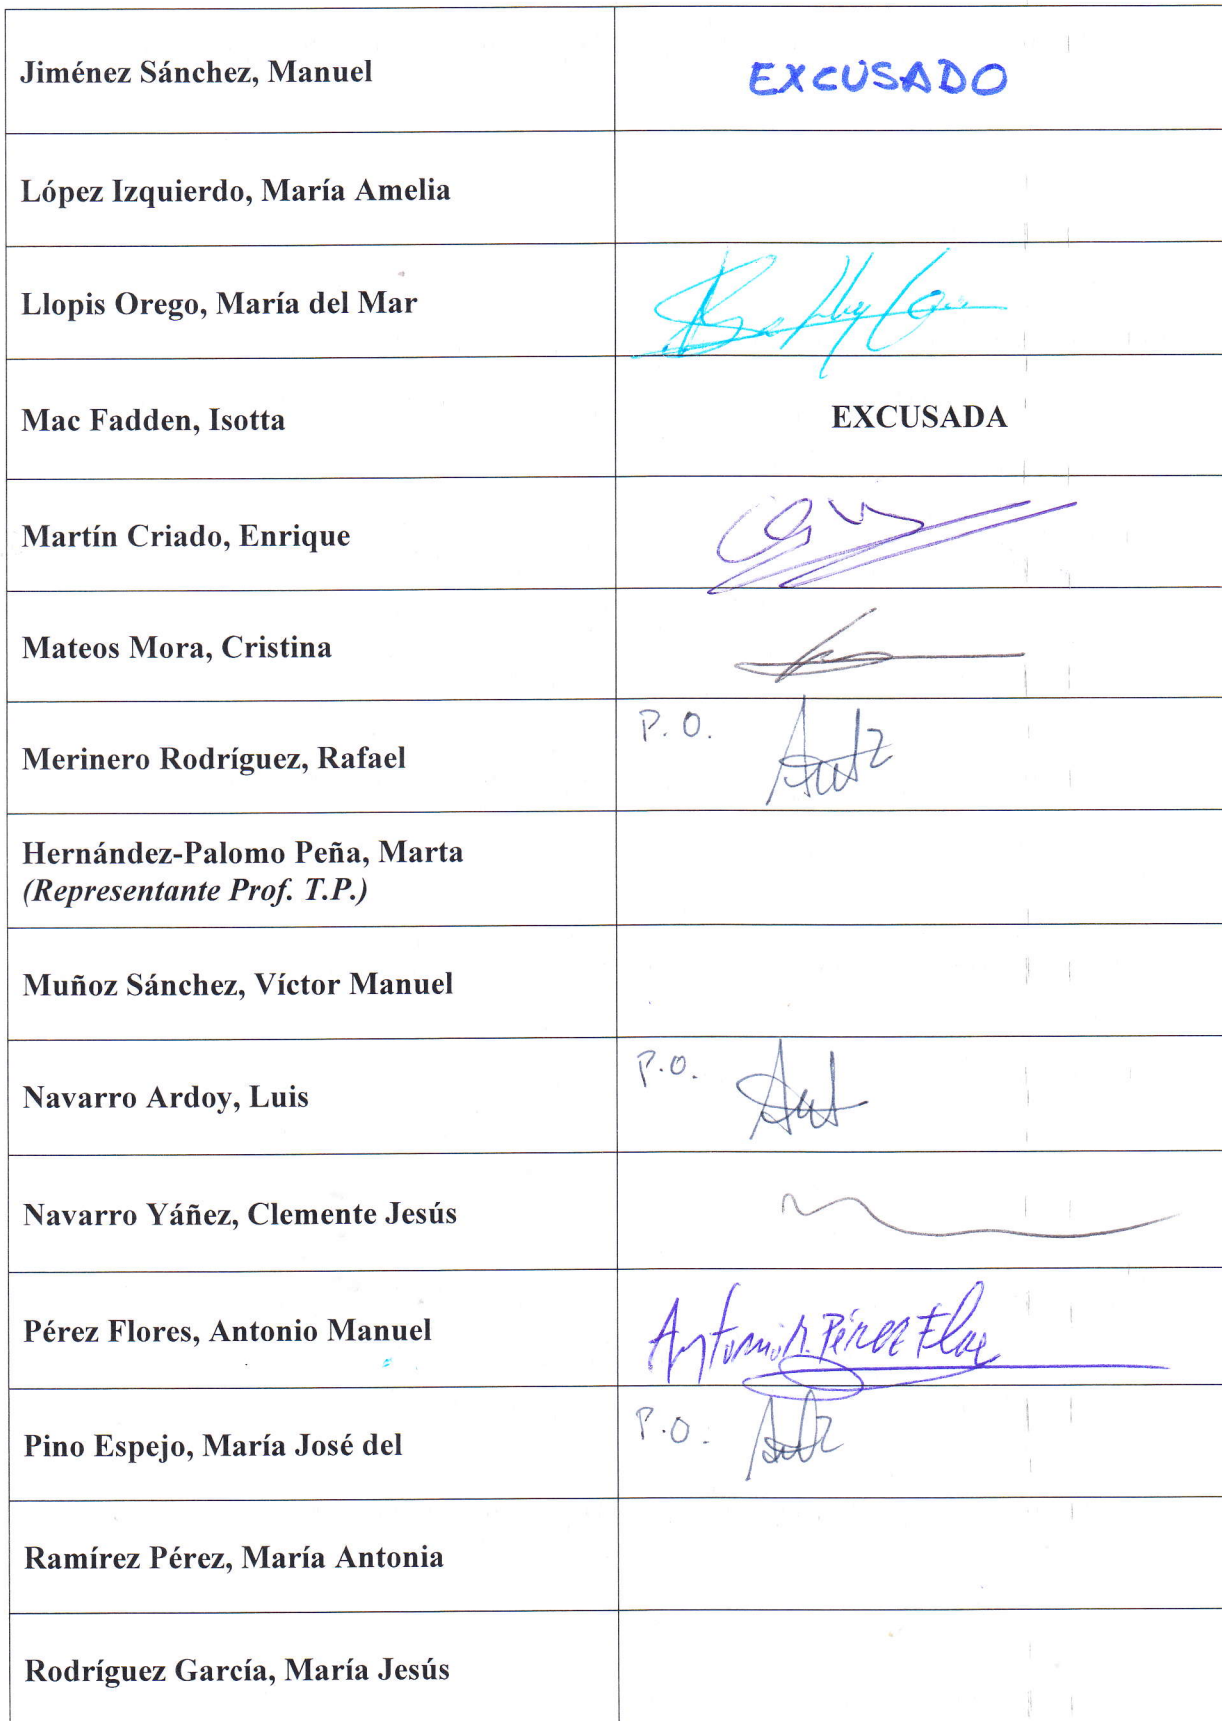 Jiménez Sánchez, Manuel EXCUSADO
López Izquierdo, María Amelia
Llopis Orego, María del Mar
Mac Fadden, Isotta EXCUSADA
Martín Criado, Enrique
Mateos Mora, Cristina
Merinero Rodríguez, Rafael P.O.
Hernández-Palomo Peña, Marta
(Representante Prof. T.P.)
Muñoz Sánchez, Víctor Manuel
Navarro Ardoy, Luis P.O.
Navarro Yáñez, Clemente Jesús
Pérez Flores, Antonio Manuel Antonio M. Pérez Flores
Pino Espejo, María José del P.O.
Ramírez Pérez, María Antonia
Rodríguez García, María Jesús